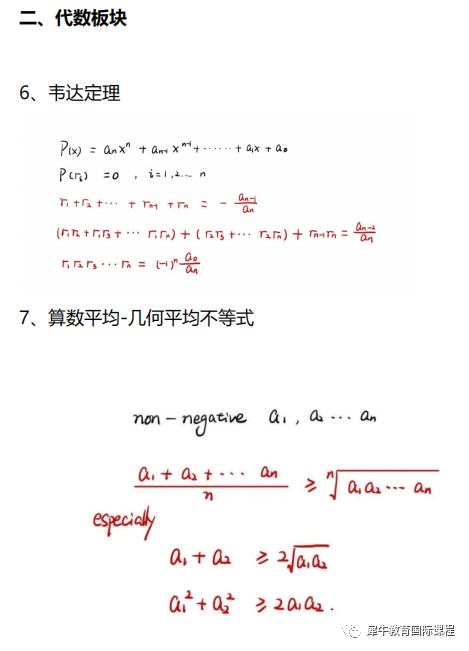 二、代数板块
6、韦达定理
P(x) = aₙxⁿ + aₙ₋₁xⁿ⁻¹ + ······ + a₁x + a₀
P(rᵢ) = 0 , i=1,2... n
r₁ + r₂ + ··· + rₙ₋₁ + rₙ = - aₙ₋₁/aₙ
(r₁r₂ + r₁r₃ + ··· r₁rₙ) + (r₂r₃ + ··· r₂rₙ) + rₙ₋₁rₙ = aₙ₋₂/aₙ
r₁ r₂ r₃ ··· rₙ = (-1)ⁿ a₀/aₙ
7、算数平均-几何平均不等式
non-negative a₁, a₂ ··· aₙ
(a₁ + a₂ + ··· aₙ)/n ≥ ⁿ√(a₁a₂ ··· aₙ)
especially
a₁ + a₂ ≥ 2√(a₁a₂)
a₁² + a₂² ≥ 2a₁a₂.
犀牛教育国际课程